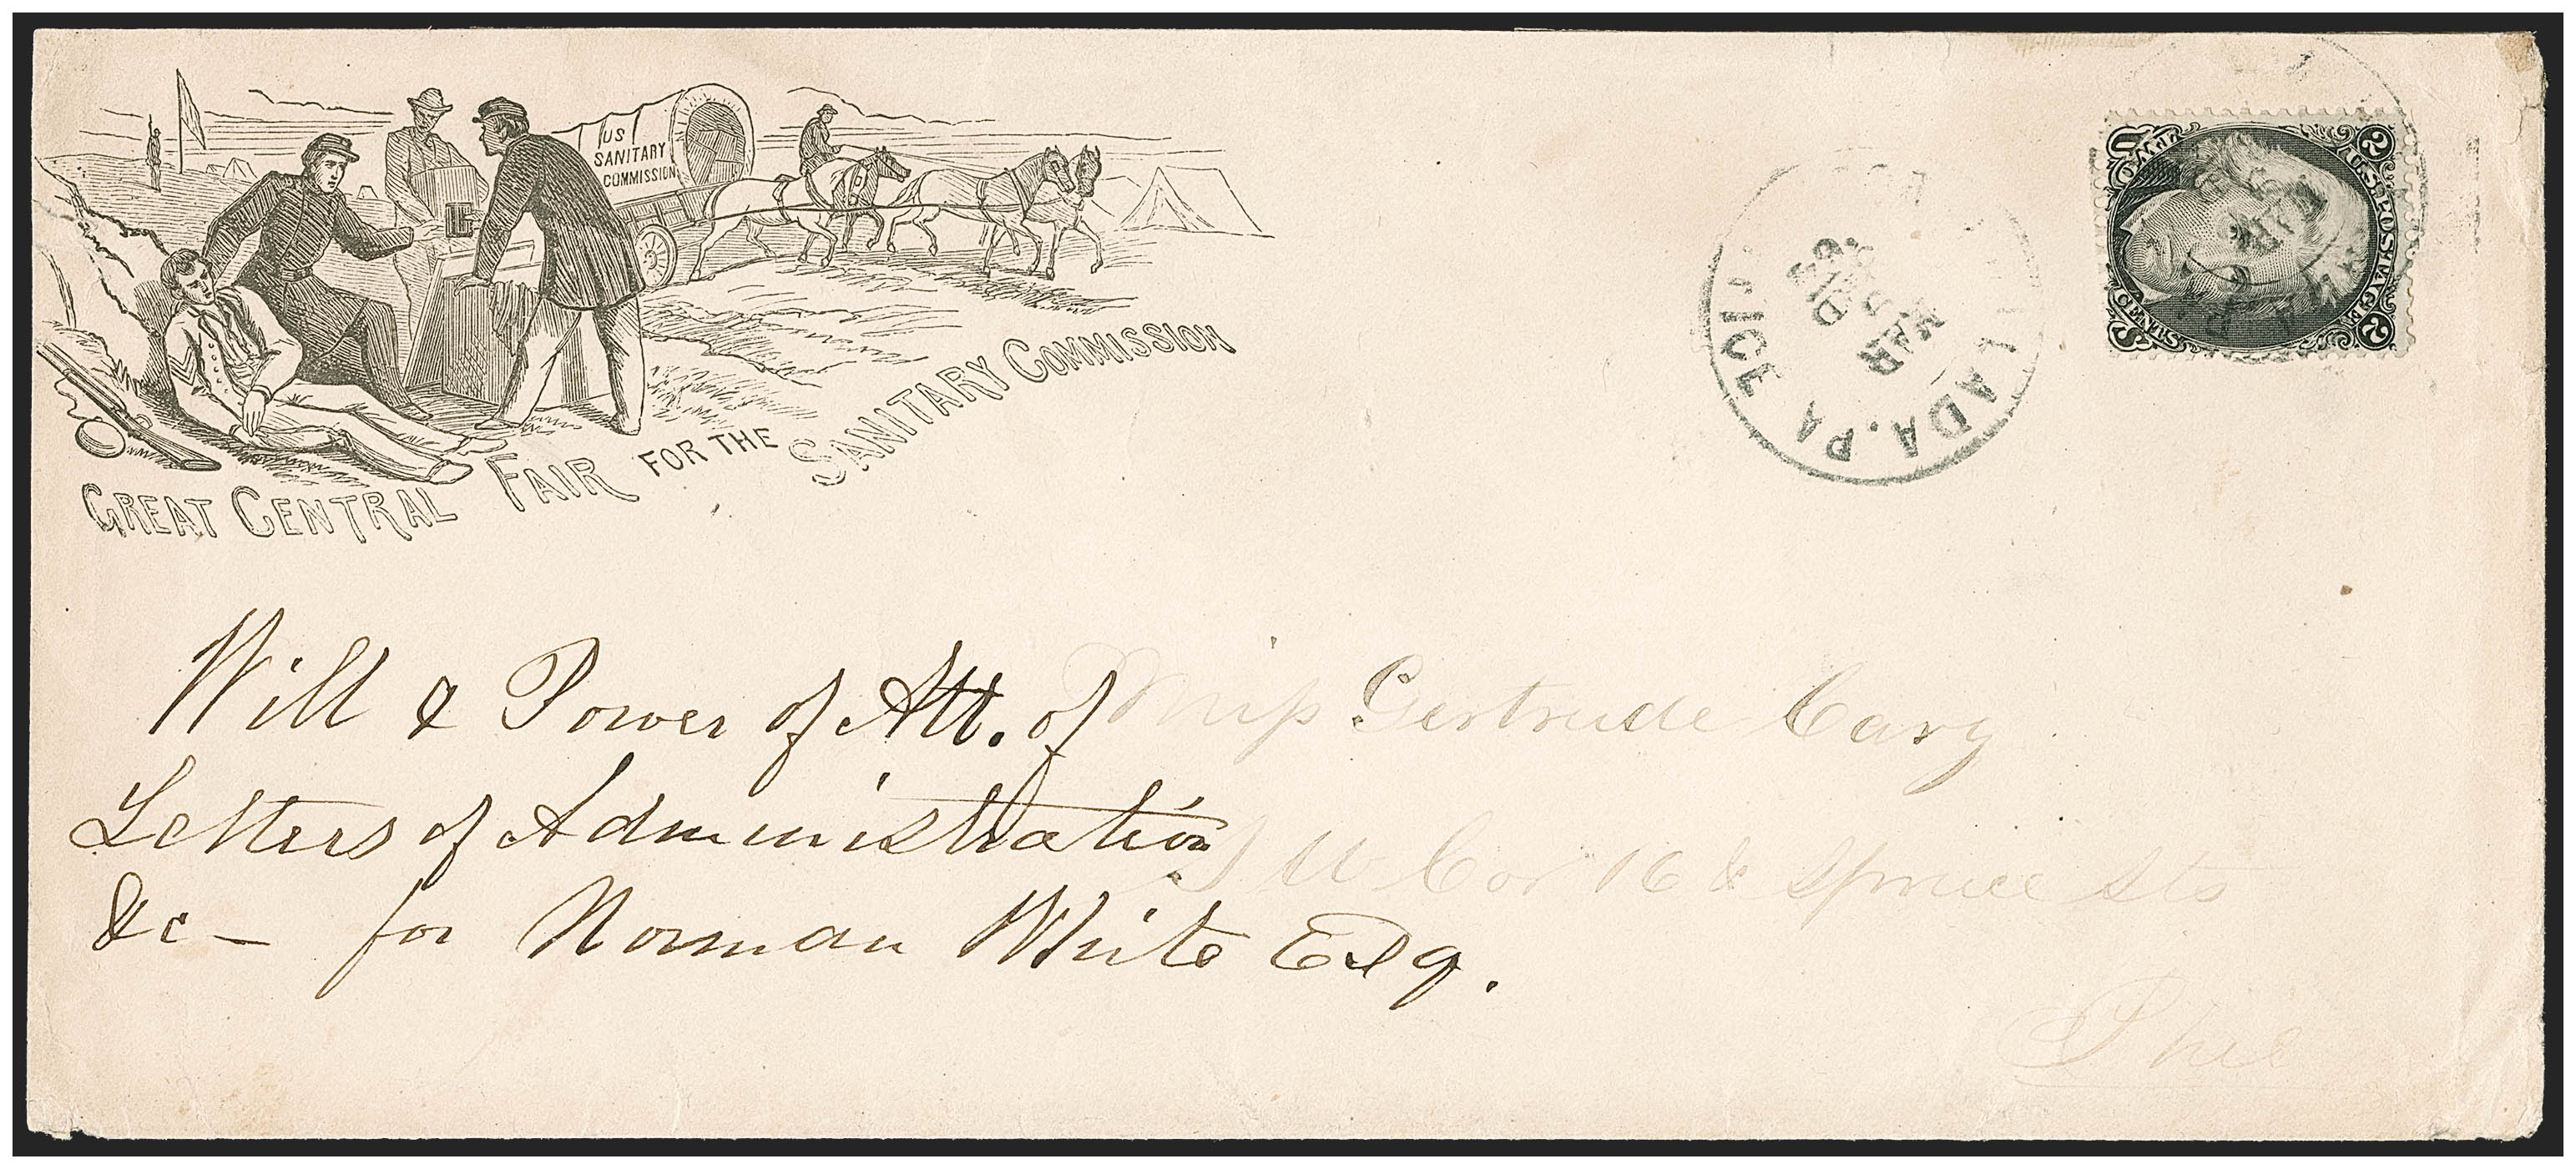 US
SANITARY
COMMISSION
GREAT CENTRAL FAIR FOR THE SANITARY COMMISSION
U.S. POSTAGE
2 2
U S
TWO CENTS
PHILADA. PA
MAR
Will & Power of Att. of
Letters of Administration
&c — for Norman White Esq.
Miss Gertrude Cary
S W Cor 16 & Spruce Sts